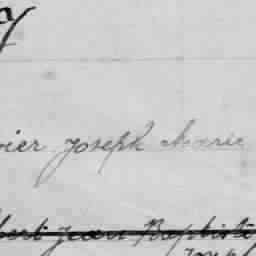 vier Joseph Marie
bert Jean Baptiste
Joseph